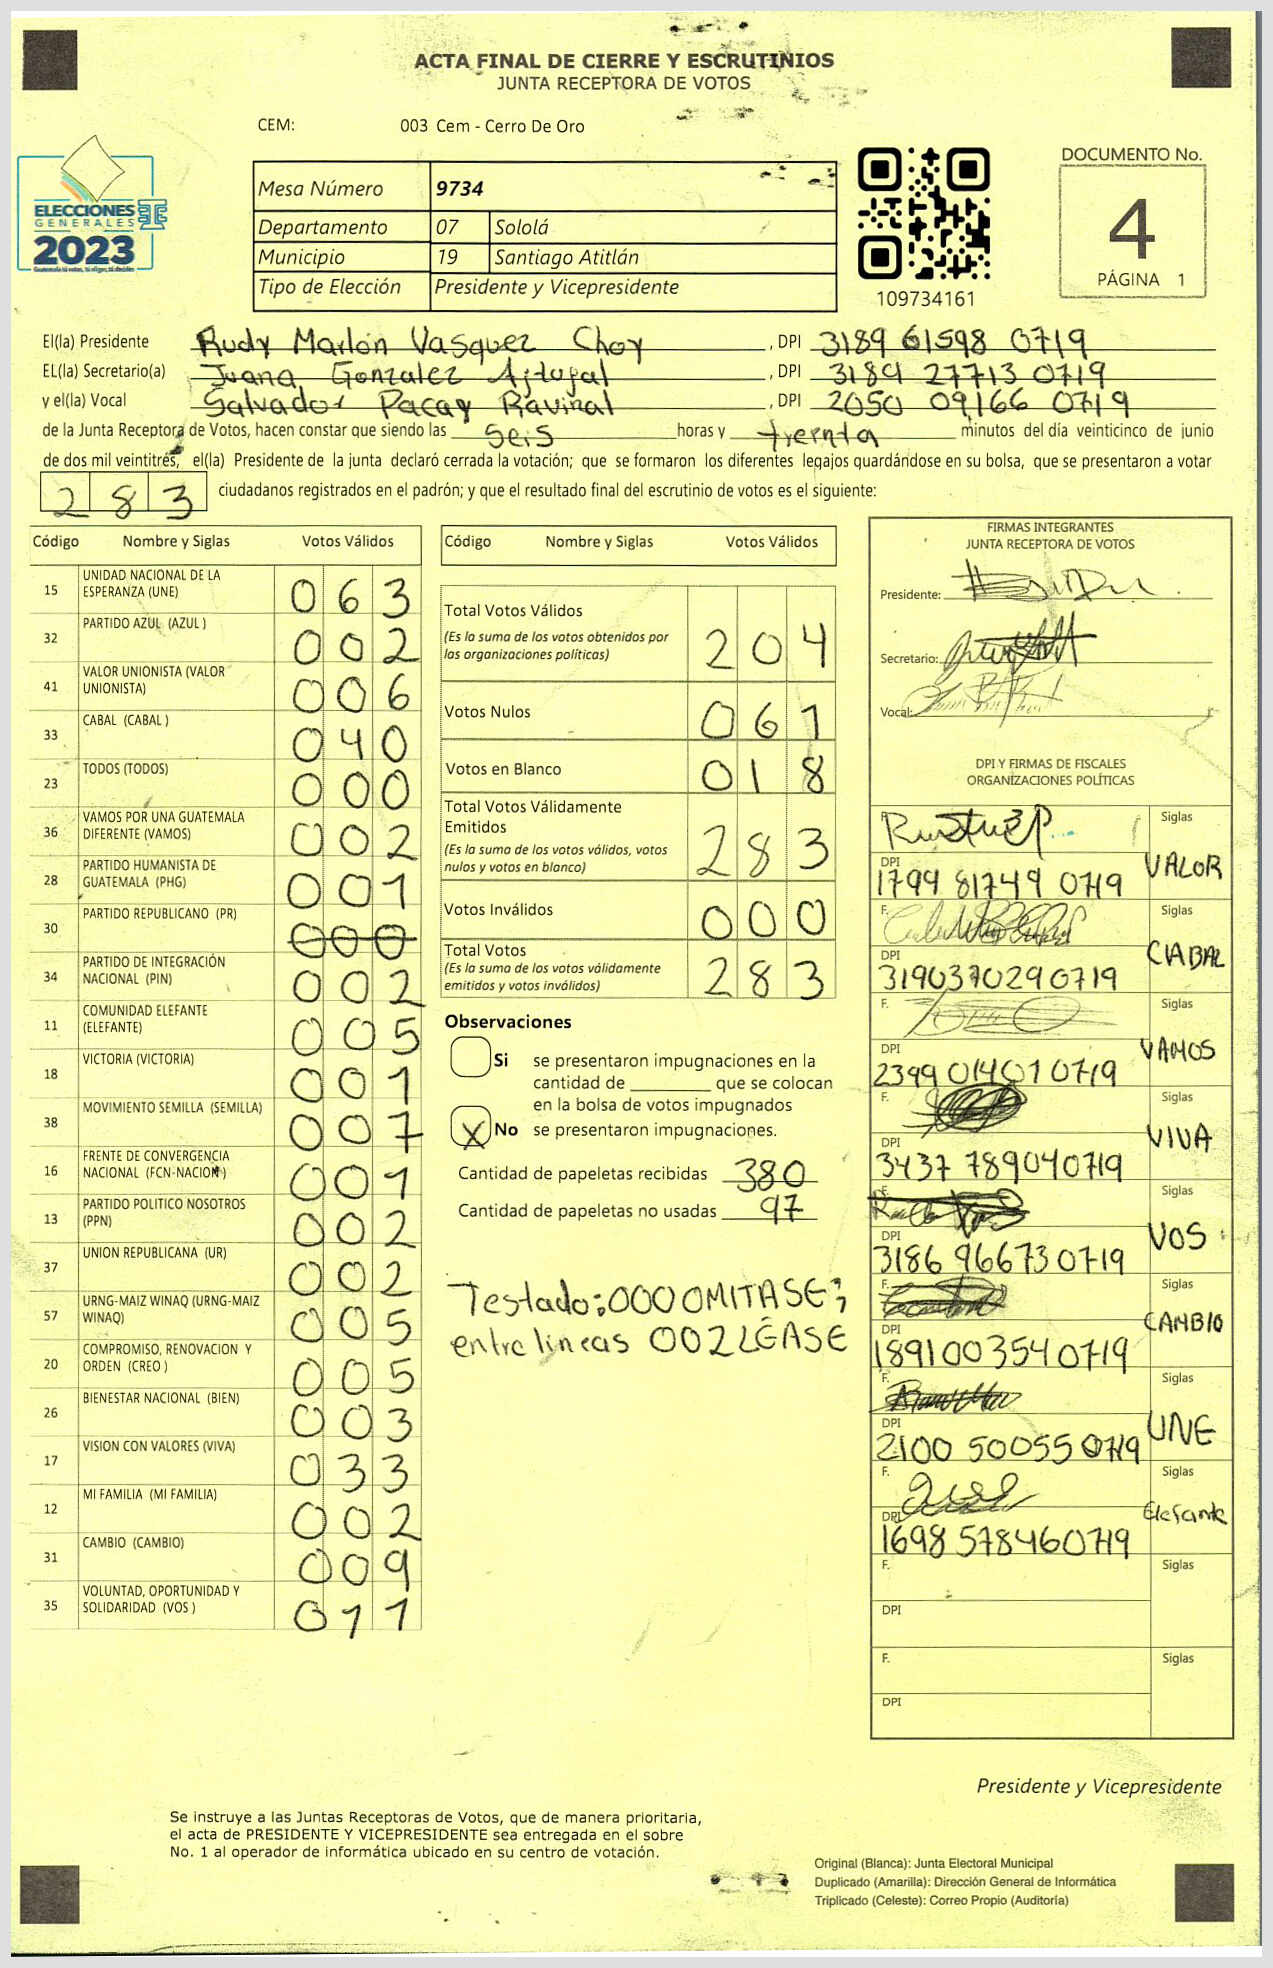 ACTA FINAL DE CIERRE Y ESCRUTINIOS
JUNTA RECEPTORA DE VOTOS
CEM: 003 Cem - Cerro De Oro
ELECCIONES
GENERALES
2023
Guatemala tú votas, tú eliges, tú decides
Mesa Número 9734
Departamento 07 Sololá
Municipio 19 Santiago Atitlán
Tipo de Elección Presidente y Vicepresidente
109734161
DOCUMENTO No.
4
PÁGINA 1
El(la) Presidente Rudy Marlon Vasquez Choy , DPI 3189 61598 0719
EL(la) Secretario(a) Juana Gonzalez , DPI 3189 27713 0719
y el(la) Vocal Salvador Pacay , DPI 2050 09166 0719
de la Junta Receptora de Votos, hacen constar que siendo las seis horas y treinta minutos del día veinticinco de junio
de dos mil veintitrés, el(la) Presidente de la junta declaró cerrada la votación; que se formaron los diferentes legajos quardándose en su bolsa, que se presentaron a votar
283 ciudadanos registrados en el padrón; y que el resultado final del escrutinio de votos es el siguiente:
Código Nombre y Siglas Votos Válidos
15 UNIDAD NACIONAL DE LA
ESPERANZA (UNE) 063
32 PARTIDO AZUL (AZUL ) 002
41 VALOR UNIONISTA (VALOR
UNIONISTA) 006
33 CABAL (CABAL ) 040
23 TODOS (TODOS) 000
36 VAMOS POR UNA GUATEMALA
DIFERENTE (VAMOS) 002
28 PARTIDO HUMANISTA DE
GUATEMALA (PHG) 001
30 PARTIDO REPUBLICANO (PR) 000
34 PARTIDO DE INTEGRACIÓN
NACIONAL (PIN) 002
11 COMUNIDAD ELEFANTE
(ELEFANTE) 005
18 VICTORIA (VICTORIA) 001
38 MOVIMIENTO SEMILLA (SEMILLA) 007
16 FRENTE DE CONVERGENCIA
NACIONAL (FCN-NACION) 001
13 PARTIDO POLITICO NOSOTROS
(PPN) 002
37 UNION REPUBLICANA (UR) 002
57 URNG-MAIZ WINAQ (URNG-MAIZ
WINAQ) 005
20 COMPROMISO, RENOVACION Y
ORDEN (CREO ) 005
26 BIENESTAR NACIONAL (BIEN) 003
17 VISION CON VALORES (VIVA) 033
12 MI FAMILIA (MI FAMILIA) 002
31 CAMBIO (CAMBIO) 009
35 VOLUNTAD, OPORTUNIDAD Y
SOLIDARIDAD (VOS ) 011
Código Nombre y Siglas Votos Válidos
Total Votos Válidos
(Es la suma de los votos obtenidos por
las organizaciones políticas) 204
Votos Nulos 061
Votos en Blanco 018
Total Votos Válidamente
Emitidos
(Es la suma de los votos válidos, votos
nulos y votos en blanco) 283
Votos Inválidos 000
Total Votos
(Es la suma de los votos válidamente
emitidos y votos inválidos) 283
Observaciones
Si se presentaron impugnaciones en la
cantidad de ________ que se colocan
en la bolsa de votos impugnados
X No se presentaron impugnaciones.
Cantidad de papeletas recibidas 380
Cantidad de papeletas no usadas 97
Testado:000OMITASE;
entre lineas 002LÉASE
FIRMAS INTEGRANTES
JUNTA RECEPTORA DE VOTOS
Presidente:
Secretario:
Vocal:
DPI Y FIRMAS DE FISCALES
ORGANIZACIONES POLÍTICAS
Siglas
DPI
1794 81749 0719 VALOR
F. Siglas
DPI
3190370290719 CABAL
F. Siglas
DPI
2399 01401 0719 VAMOS
F. Siglas
DPI
3437 78904 0719 VIVA
F. Siglas
DPI
3186 96673 0719 VOS
F. Siglas
DPI
1891003540719 CAMBIO
F. Siglas
DPI
2100 50055 0719 UNE
F. Siglas
DPI
1698 57846 0719 Elefante
F. Siglas
DPI
F. Siglas
DPI
Presidente y Vicepresidente
Se instruye a las Juntas Receptoras de Votos, que de manera prioritaria,
el acta de PRESIDENTE Y VICEPRESIDENTE sea entregada en el sobre
No. 1 al operador de informática ubicado en su centro de votación.
Original (Blanca): Junta Electoral Municipal
Duplicado (Amarilla): Dirección General de Informática
Triplicado (Celeste): Correo Propio (Auditoría)